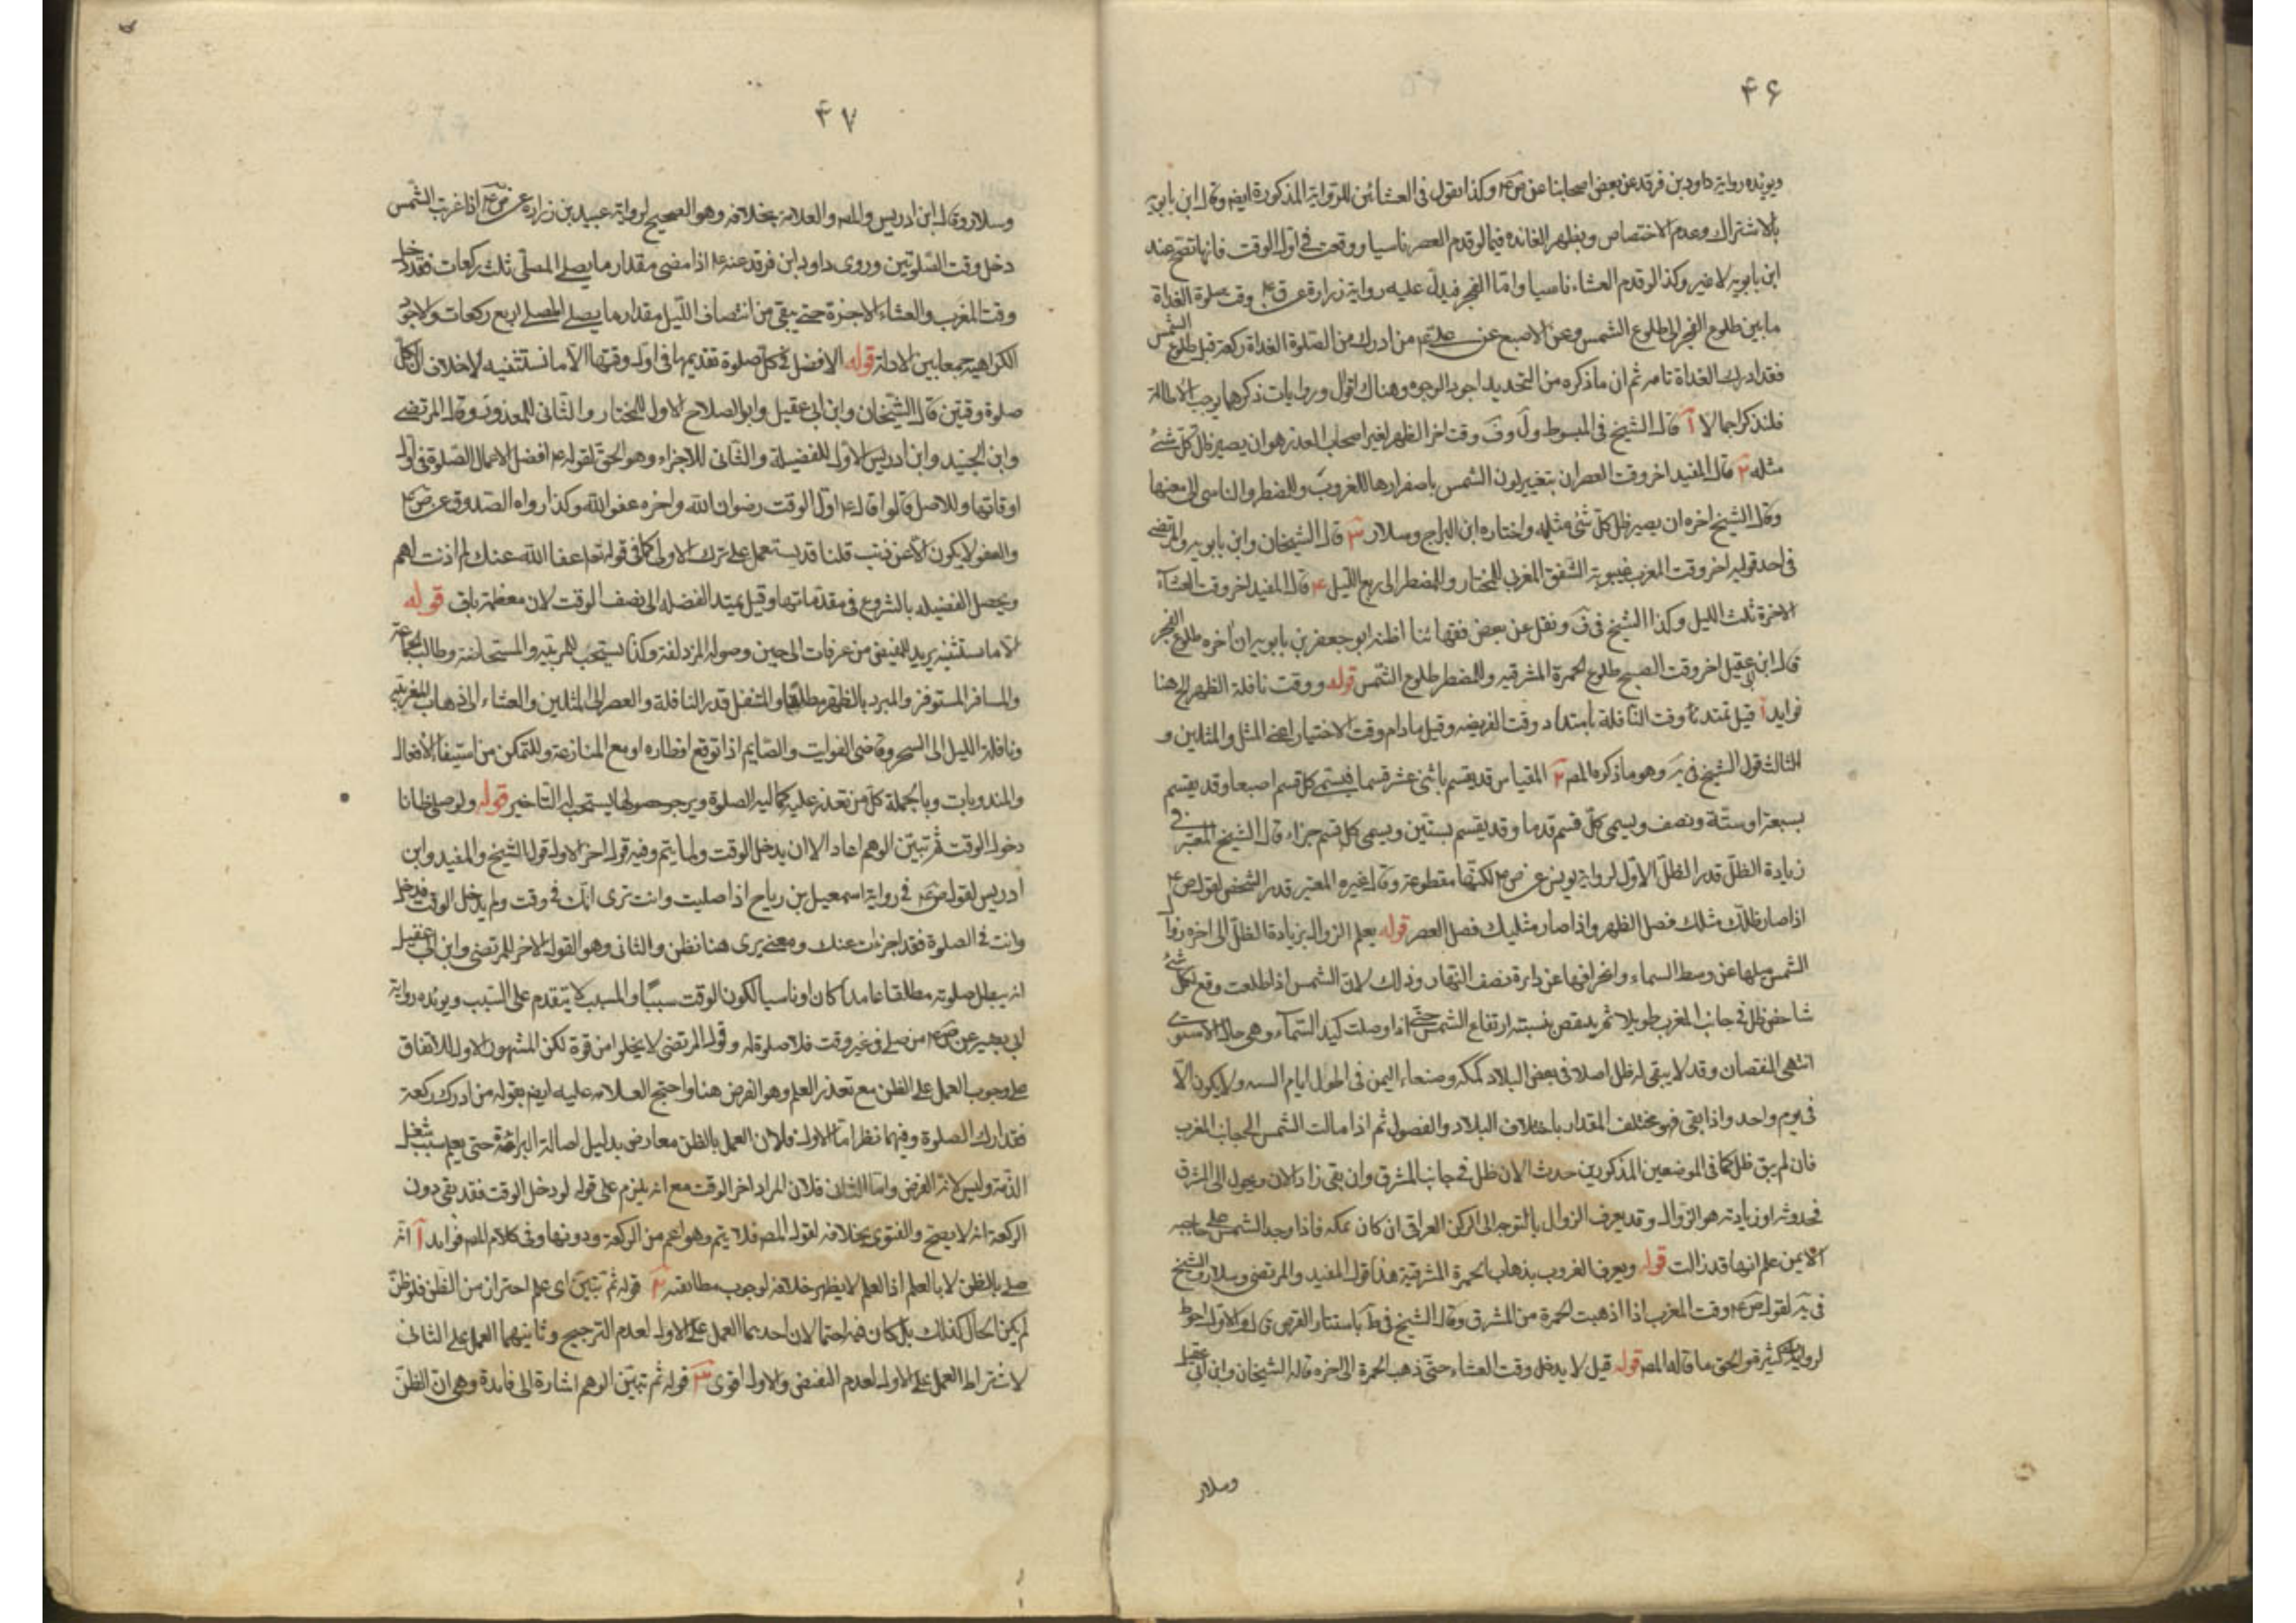 ۴۶
ويؤيده رواية داود بن فرقد عن بعض اصحابنا عن ص ع وكذا نقول فى العشائين للرواية المذكورة ايضا وقال ابن بابويه
بالاشتراك وعدم الاختصاص ويظهر الفائده فيما لو قدم العصر ناسيا ووقعت فى اول الوقت فانها تصح عند
ابن بابويه لا غير وكذا لو قدم العشاء ناسيا واما الفجر فيدل عليه رواية زرارة عن ق ع وقت صلوة الغداة
ما بين طلوع الفجر الى طلوع الشمس وعن الاصبع عن على ع من ادرك من الصلوة الغداة ركعة قبل طلوع الشمس
فقد ادرك الغداة تامه ثم ان ما ذكره من التحديد اجود الوجوه وهناك اقوال وروايات ذكرها يوجب الاطالة
فلنذكر اجمالا آ قال الشيخ فى المبسوط ول وف وقت اخر الظهر لغير اصحاب العذر هو ان يصير ظل كل شئ
مثله ٢ قال المفيد اخر وقت العصر ان بتغيير لون الشمس باصفرارها للغروب وللمضطر والناسى الى مغيبها
وقال الشيخ اخره ان يصير ظل كل شئ مثليه واختاره ابن البراج وسلار ٣ قال الشيخان وابن بابويه والمرتضى
فى احد قوليه اخر وقت المغرب غيبوبة الشفق المغربى للمختار وللمضطر الى ربع الليل ۴ قال المفيد اخر وقت العشاء
الاخرة ثلث الليل وكذا الشيخ فى ف ونقل عن بعض فقهائنا اظنه ابو جعفر بن بابويه ان اخره طلوع الفجر
قال ابن ابى عقيل اخر وقت الصبح طلوع الحمرة المشرقيه وللمضطر طلوع الشمس قوله ووقت نافلة الظهر الخ هنا
فوايد آ قيل تمتد وقت النافلة بامتداد وقت الفريضه وقيل ما دام وقت الاختيار اعنى المثل والمثلين و
الثالث قول الشيخ فى يه وهو ما ذكره المص ٢ المقياس قد يقسم باثنى عشر قسما فيسمى كل قسم اصبعا وقد يقسم
بسبعة او ستة ونصف ويسمى كل قسم قدما وقد يقسم بستين ويسمى كل قسم جزاء قال الشيخ المعتبر فى
زيادة الظل قدر الظل الاول لرواية يونس عن ص ع لكنها مقطوعة وقال غيره المعتبر قدر الشخص لقول ص ع
اذا صار ظلك مثلك فصل الظهر واذا صار مثليك فصل العصر قوله يعلم الزوال بزيادة الظل الى اخره زوال
الشمس ميلها عن وسط السماء وانحرافها عن دايرة نصف النهار وذلك لان الشمس اذا طلعت وقع لكل شئ
شاخص ظل فى جانب المغرب طويلا ثم ينقص بنسبة ارتفاع الشمس حتى اذا وصلت كبد السماء وهى حالة الاستوى
انتهى النقصان وقد لا يبقى له ظل اصلا فى بعض البلاد كمكه وصنعاء اليمن فى اطول ايام السنه ولا يكون الا
فى يوم واحد واذا بقى فهو مختلف المقدار باختلاف البلاد والفصول ثم اذا مالت الشمس الى جانب المغرب
فان لم يبق ظل كما فى الموضعين المذكورين حدث الان ظل فى جانب المشرق وان بقى زاد الان ويحول الى المشرق
فحدوثه او زيادته هو الزوال وقد يعرف الزوال بالتوجه الى الركن العراقى ان كان بمكه فاذا وجد الشمس على حاجبه
الايمن علم انها قد زالت قوله ويعرف الغروب بذهاب الحمرة المشرقية هذا قول المفيد والمرتضى وسلار والشيخ
فى يه لقول ص ع وقت المغرب اذا ذهبت الحمرة من المشرق وقال الشيخ فى ط باستتار القرص والاول احوط
كثيرة والحق ما قاله المص قوله قيل لا يدخل وقت العشاء حتى ذهب الحمرة الى اخره قاله الشيخان وابن ابى عقيل
وسلار
۴۷
وسلار وقال ابن ادريس والمص والعلامة بخلافه وهو الصحيح لرواية عبيد بن زرارة عن ص ع اذا غربت الشمس
دخل وقت الصلوتين وروى داود ابن فرقد عنه ع اذا مضى مقدار ما يصلى المصلى ثلث ركعات فقد دخل
وقت المغرب والعشاء الاخرة حتى يبقى من انتصاف الليل مقدار ما يصلى المصلى اربع ركعات
الكراهية جمعا بين الادلة قوله الافضل فى كل صلوة تقديمها فى اول وقتها الا ما نستثنيه لا خلاف ان لكل
صلوة وقتين قال الشيخان وابن ابى عقيل وابو الصلاح الاول للمختار والثانى للمعذور وقال المرتضى
وابن الجنيد وابن ادريس الاول للفضيلة والثانى للاجزاء وهو الحق لقوله ع افضل الاعمال الصلوة فى اول
اوقاتها وللاصل قالوا قال ع اول الوقت رضوان الله واخره عفو الله وكذا رواه الصدوق عن ص ع
والعفو لا يكون الا عن ذنب قلنا قد يستعمل على ترك الاولى كما فى قوله تعا عفا الله عنك لم اذنت لهم
ويحصل الفضيله بالشروع فى مقدماتها وقيل يمتد الفضله الى نصف الوقت لان معظمه باق قوله
الا ما نستثنيه يريد المفيض من عرفات الى حين وصوله المزدلفة وكذا يستحب للمربيه والمستحاضه وطالب الجماعة
والمسافر المستوفز والمبرد بالظهر مطلقا والمتنفل قدر النافلة والعصر الى المثلين والعشاء الى ذهاب المغربيه
ونافلة الليل الى السحر وقاضى الفوايت والصايم اذا توقع افطاره او مع المنازعة وللتمكن من استيفاء الافعال
والمندوبات وبالجملة كل من تعذر عليه كمالية الصلوة ويرجو حصولها يستحب له التاخير قوله ولو صلى ظانا
دخول الوقت ثم تبين الوهم اعاد الا ان يدخل الوقت ولما يتم وفيه قول اخر الاول قول الشيخ والمفيد وابن
ادريس لقول ص ع فى رواية اسمعيل بن رياح اذا صليت وانت ترى انك فى وقت ولم يدخل الوقت فدخل
وانت فى الصلوة فقد اجزات عنك ومعنى يرى هنا نظن والثانى وهو القول الاخر للمرتضى وابن ابى عقيل
انه يبطل صلوته مطلقا عامدا كان او ناسيا لكون الوقت سببا والمسبب لا يتقدم على السبب ويؤيده رواية
ابى بصير عن ص ع من صلى فى غير وقت فلا صلوة له وقول المرتضى لا يخلوا من قوة لكن المشهور الاول للاتفاق
على وجوب العمل على الظن مع تعذر العلم وهو الفرض هنا واحتج العلامه عليه ايضا بقوله من ادرك ركعة
فقد ادرك الصلوة وفيهما نظر اما الاول فلان العمل بالظن معارض بدليل اصالة البرائة حتى يعلم سبب شغل
الذمة وليس لانه الفرض واما الثانى فلان المراد اخر الوقت مع انه يلزم على قوله لو دخل الوقت فقد بقى دون
الركعة انه لا يصح والفتوى بخلافه لقول المص فلا يتم وهو اعم من الركعة ودونها وفى كلام المص فوايد آ انه
صلى بالظن لا بالعلم اذ العلم لا يظهر خلافه لوجوب مطابقته ٢ قوله ثم تبين اى علم احتراز من الظن فلو ظن
لم يكن الحال كذلك بل كان فيه احتمالان احدهما العمل على الاول لعدم الترجيح وثانيهما العمل على الثانى
لاشتراط العمل على الاول لعدم النقيض والاول اقوى ٣ قوله ثم تبين الوهم اشارة الى فايدة وهى ان الظن